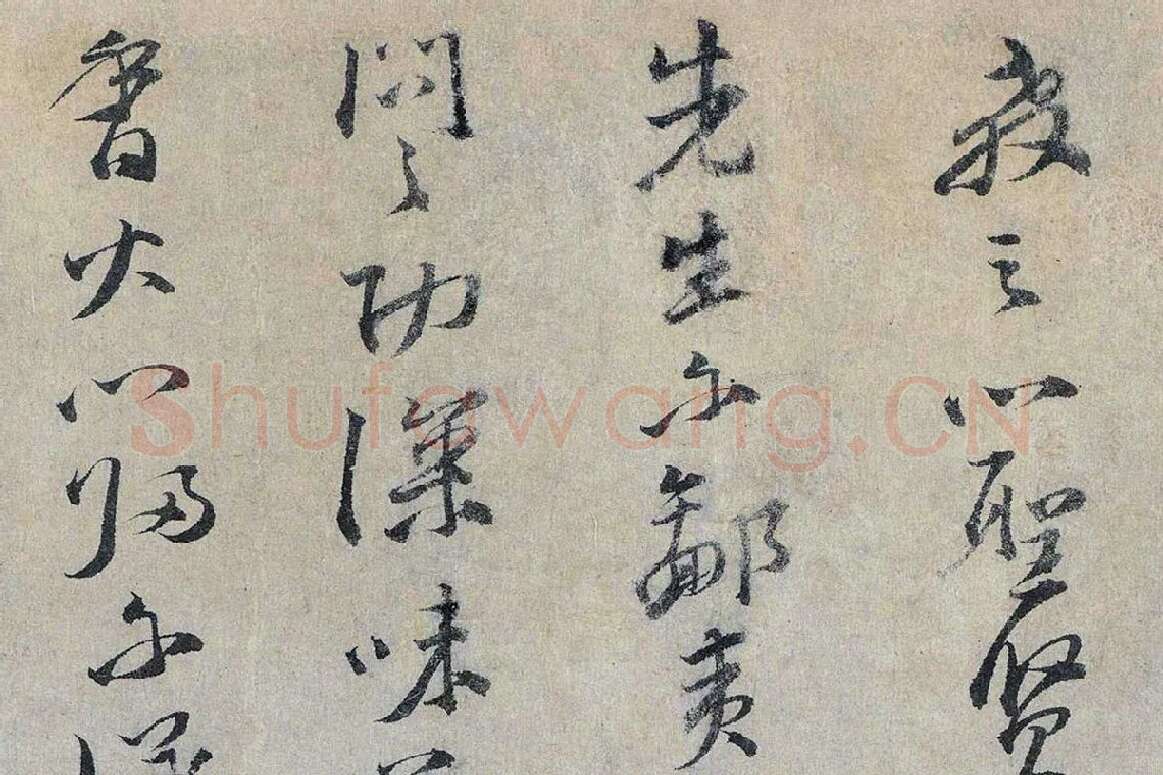 教之以聖賢
先生不鄙夷
問之功深味
以歸不
Shufawang.CN